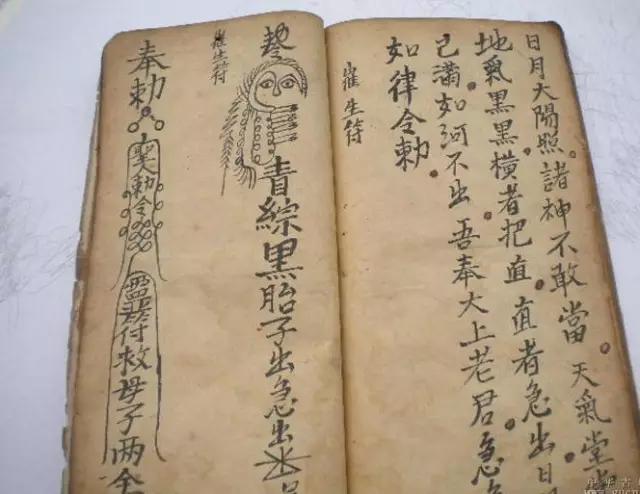 日月大陽照諸神不敢當天氣堂
地氣黑黑橫者把直直者急出日
已滿如河不出吾奉大上老君急
如律令勅
崔生符
青綜黑胎子出急出
崔生符
奉勅勅令付救母子两全